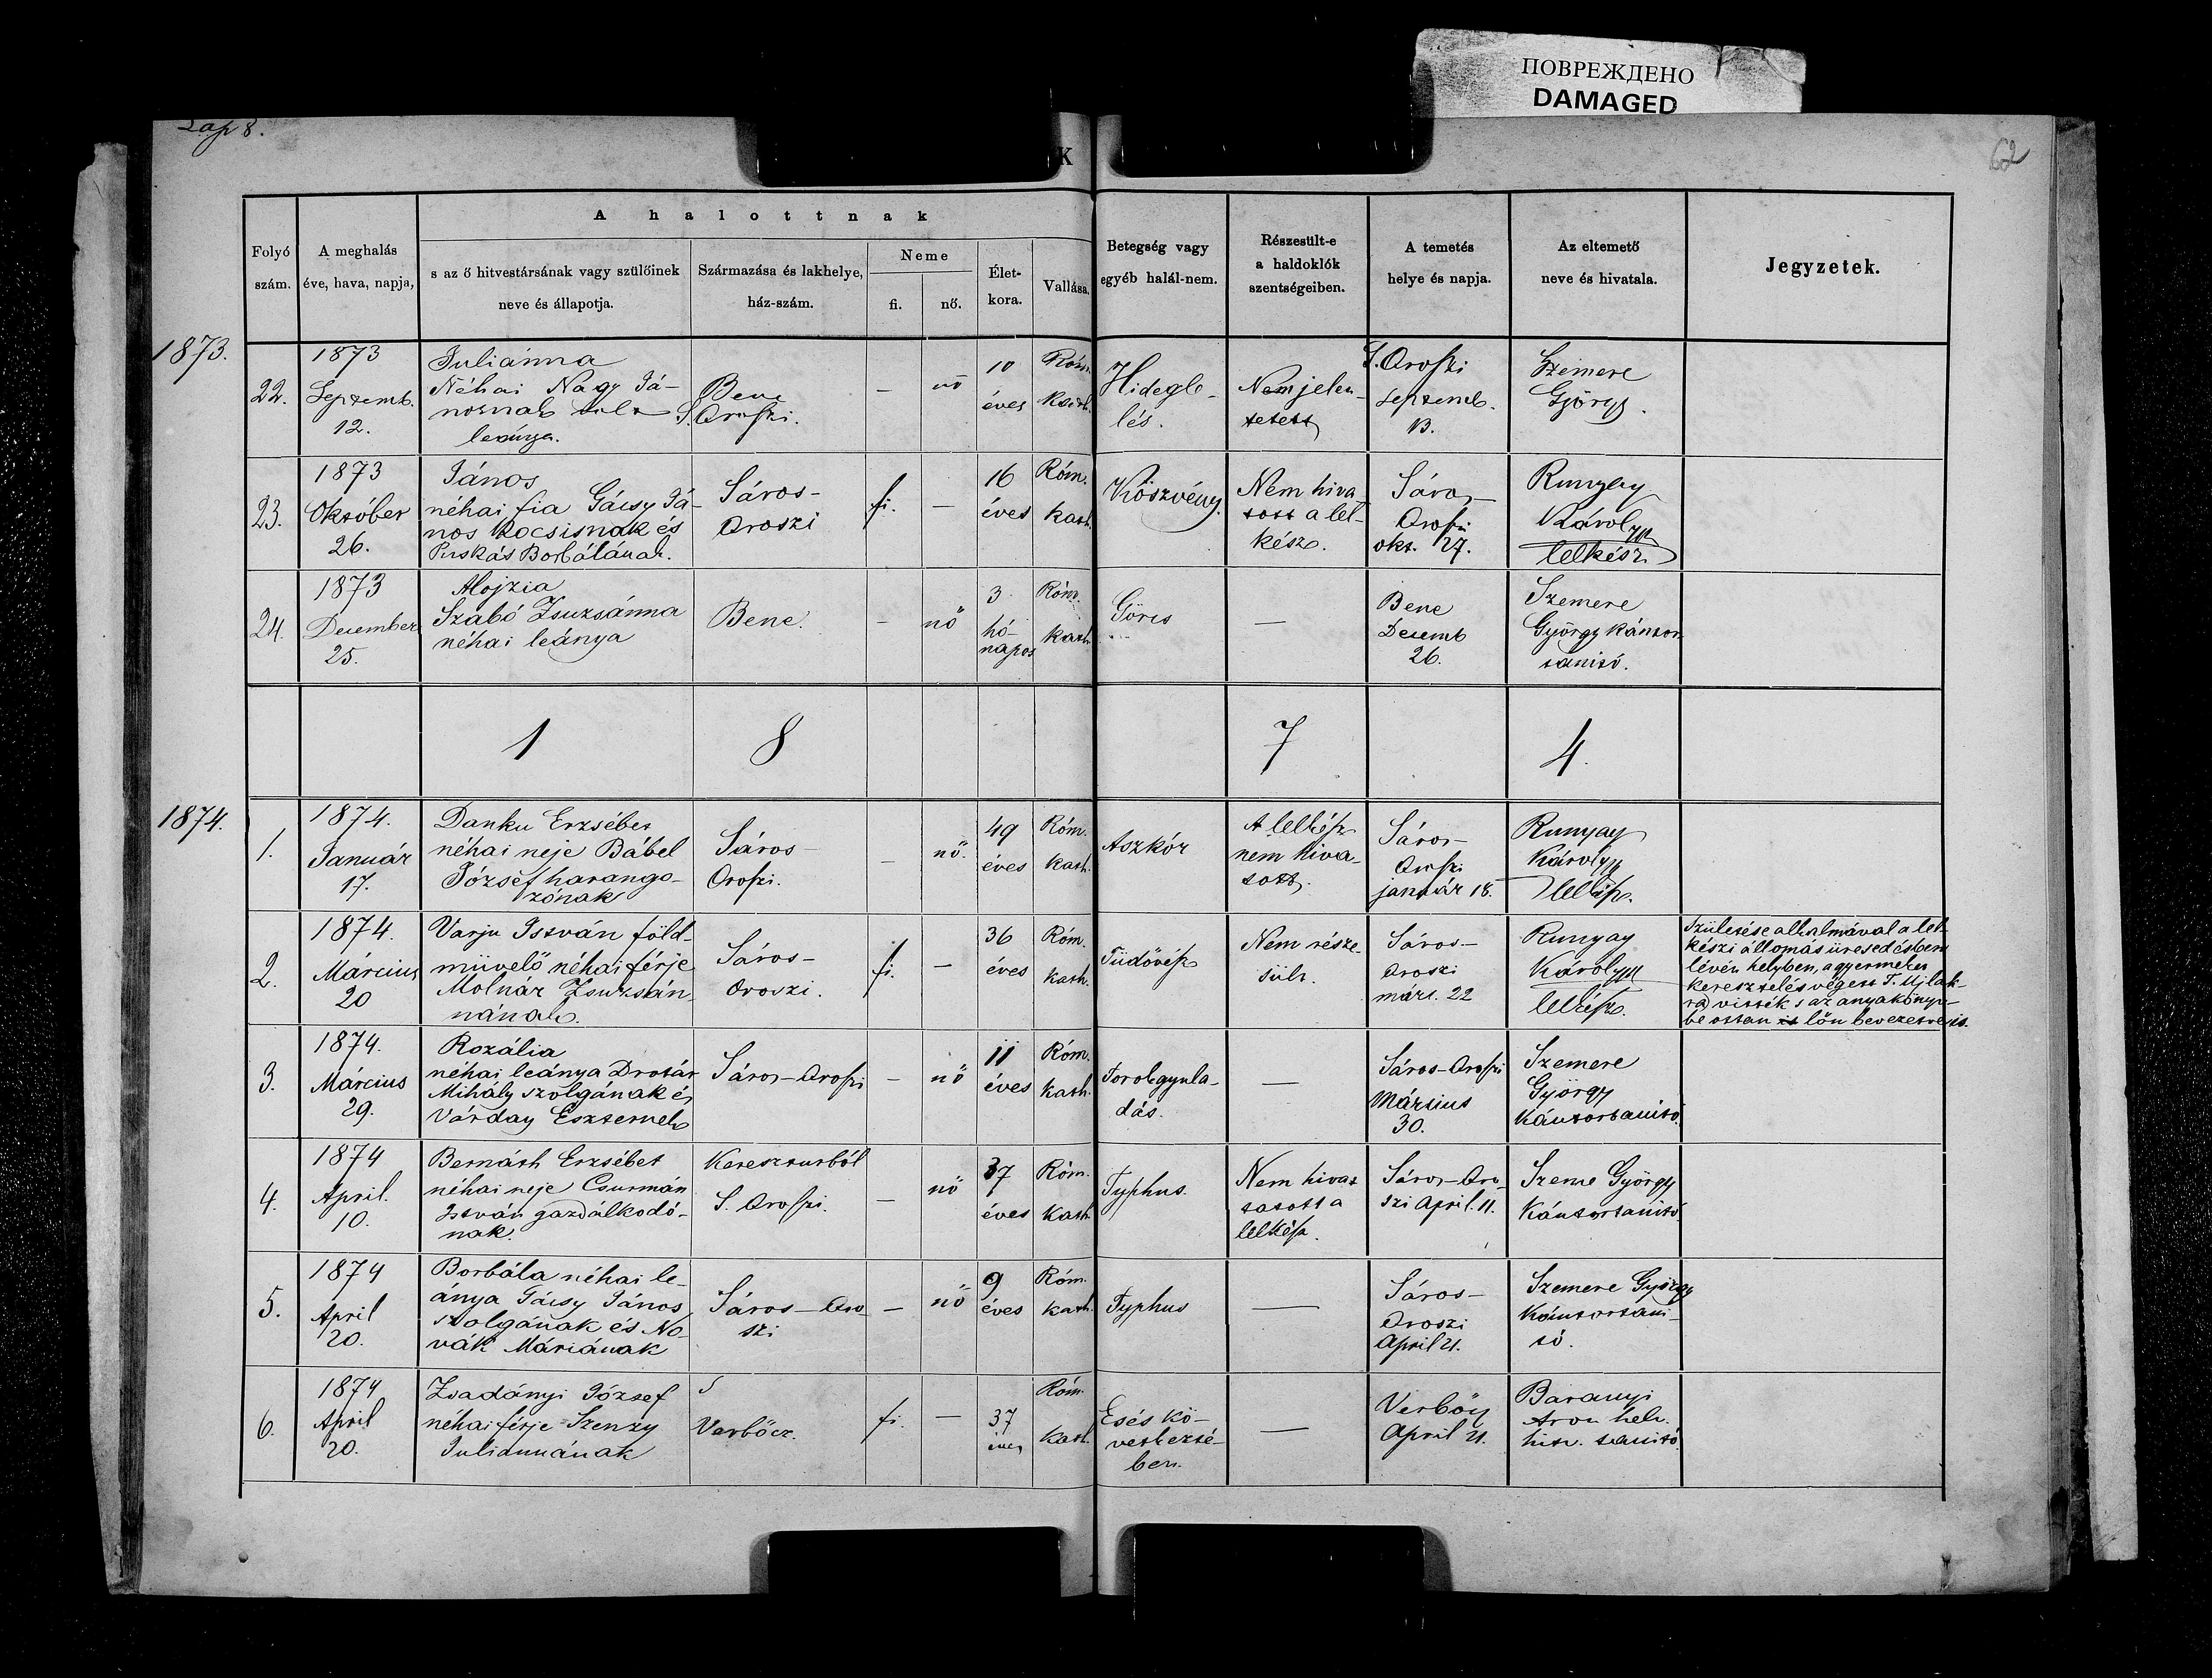 ПОВРЕЖДЕНО
DAMAGED
Lap 8.
62
K
Folyó szám.
A meghalás éve, hava, napja,
A halottnak
s az ő hitvestársának vagy szülőinek neve és állapotja.
Származása és lakhelye, ház-szám.
Neme
fi.
nő.
Élet-kora.
Vallása.
Betegség vagy egyéb halál-nem.
Részesült-e a haldoklók szentségeiben.
A temetés helye és napja.
Az eltemető neve és hivatala.
Jegyzetek.
1873.
22.
1873
Septemb.
12.
Juliánna
Néhai Nagy Já-
nosnak
leánya.
Bene
S. Oroszi.
—
nő
10
éves
Róm.
Kath.
Hidegle-
lés.
Nem jelen-
tetett
S. Oroszi
septemb.
13.
Szemere
György.
23.
1873
Október
26.
János
néhai fia Gácsy Já-
nos kocsisnak és
Puskás Borbálának.
Sáros-
Oroszi
fi.
—
16
éves
Róm.
kath.
Köszvény.
Nem hiva-
tott a lel-
kész.
Sáros-
Oroszi
okt. 27.
Runyay
Károly
lelkész
24.
1873
December
25.
Alojzia
Szabó Zsuzsánna
néhai leánya
Bene.
—
nő
3
hó-
napos
Róm.
kath.
Görcs
—
Bene
Decemb
26.
Szemere
György kántor
tanitó.
1 8 7 4.
1874.
1.
1874.
Január
17.
Danku Erzsébet
néhai neje Bábel
József harango-
zónak
Sáros-
Oroszi.
—
nő.
49
éves
Róm.
kath.
Aszkór
A lelkész
nem hiva-
tott.
Sáros-
Oroszi
január 18.
Runyay
Károly
lelkész.
2.
1874.
Március
20
Varju István föld-
müvelő néhai férje
Molnár Zsuzsán-
nának.
Sáros-
Oroszi.
fi.
—
36
éves
Róm.
kath.
Tüdővész
Nem része-
sült.
Sáros-
Oroszi
márc. 22
Runyay
Károly
lelkész.
Születése alkalmával a lel-
készi állomás üresedésben
lévén helyben, a gyermeket
keresztelés végett T. Ujlak-
ra vitték s az anyakönyv-
be ottan lőn bevezetve is.
3.
1874.
Március
29.
Rozália
néhai leánya Drotár
Mihály szolgának és
Várday Eszternek
Sáros-Oroszi
—
nő
11
éves
Róm.
kath.
Torokgyula-
dás.
—
Sáros-Oroszi
Március
30.
Szemere
György
Kántortanitó.
4.
1874
April.
10.
Bernáth Erzsébet
néhai neje Csurmán
István gazdálkodó-
nak.
Kereszturból
S. Oroszi.
—
nő
37
éves
Róm.
kath.
Typhus.
Nem hivat
tatott a
lelkész.
Sáros-Oro
szi April. 11.
Szeme György
Kántortanitó.
5.
1874
April
20.
Borbála néhai le-
ánya Gácsy János
szolgának és No-
vák Máriának
Sáros-Oro
szi
—
nő
9
éves
Róm.
kath.
Typhus
—
Sáros-
Oroszi
April 21.
Szemere György
Kántortani-
tó.
6.
1874
April
20.
Zsadányi József
néhai férje Szenzy
Juliannának
Verbőcz.
fi.
—
37
éves
Róm.
kath.
Esés kö-
vetkezté-
ben.
—
Verbőcz
April 21.
Baranyi
Áron helv.
hitv. tanitó.